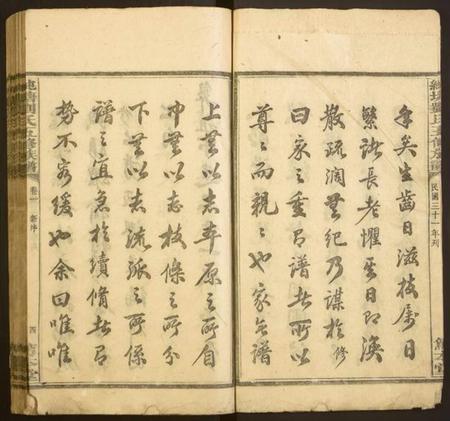 年矣生齒日滋枝屬日
繁諸長老懼其日即渙
散疏濶無紀乃謀於修
曰家之重有譜者所以
尊尊而親親也家無譜
民國三十一年列
上無以志本原之所自
中無以志枝條之所分
下無以志流派之所係
譜之宜急於續脩者有
勢不容緩也余曰唯唯
氏五修族譜
卷一
新序
四